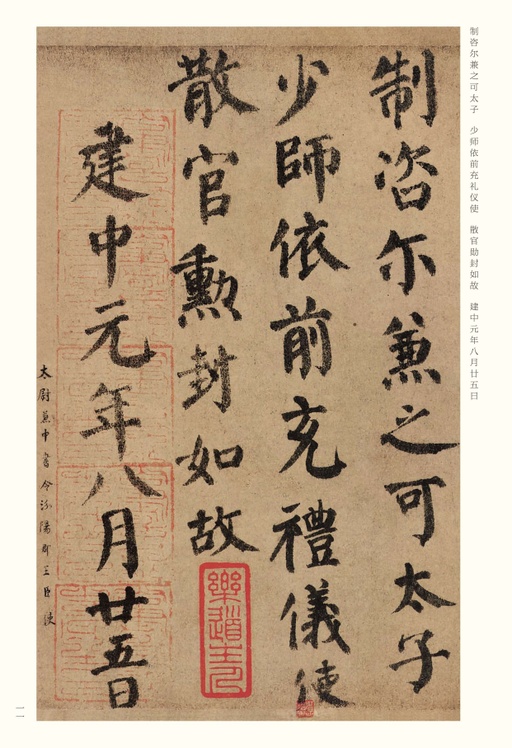 制咨尔兼之可太子 少师依前充礼仪使 散官勋封如故 建中元年八月廿五日
制咨尓兼之可太子
少師依前充禮儀使
散官勲封如故
樂道主人
建中元年八月廿五日
太尉兼中書令汾陽郡王臣使
一一